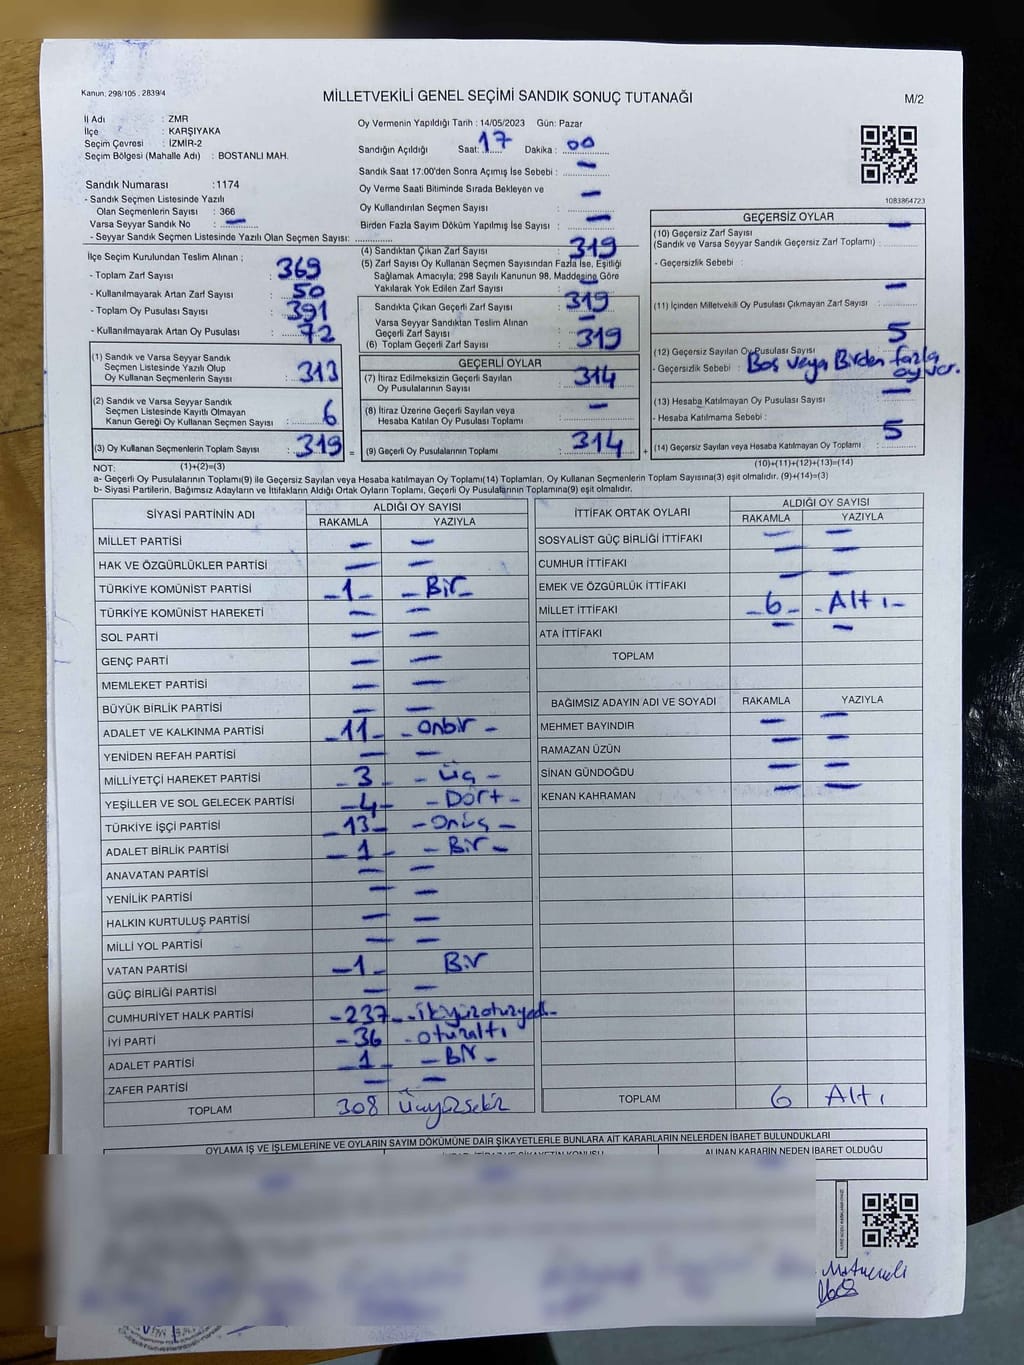 Kanun, 298/105 . 2839/4
MİLLETVEKİLİ GENEL SEÇİMİ SANDIK SONUÇ TUTANAĞI
M/2
İl Adı : ZMR
İlçe : KARŞIYAKA
Seçim Çevresi : İZMİR-2
Seçim Bölgesi (Mahalle Adı) : BOSTANLI MAH.
Oy Vermenin Yapıldığı Tarih : 14/05/2023 Gün: Pazar
Sandığın Açıldığı Saat: 17 Dakika : 00
Sandık Saat 17.00'den Sonra Açımış İse Sebebi : —
Oy Verme Saati Bitiminde Sırada Bekleyen ve
Oy Kullandırılan Seçmen Sayısı : —
Birden Fazla Sayım Döküm Yapılmış İse Sayısı : —
1083864723
Sandık Numarası : 1174
- Sandık Seçmen Listesinde Yazılı
Olan Seçmenlerin Sayısı : 366
Varsa Seyyar Sandık No —
- Seyyar Sandık Seçmen Listesinde Yazılı Olan Seçmen Sayısı:
İlçe Seçim Kurulundan Teslim Alınan ;
- Toplam Zarf Sayısı 369
- Kullanılmayarak Artan Zarf Sayısı 50
- Toplam Oy Pusulası Sayısı 391
- Kullanılmayarak Artan Oy Pusulası 72
(1) Sandık ve Varsa Seyyar Sandık
Seçmen Listesinde Yazılı Olup
Oy Kullanan Seçmenlerin Sayısı : 313
(2) Sandık ve Varsa Seyyar Sandık
Seçmen Listesinde Kayıtlı Olmayan
Kanun Gereği Oy Kullanan Seçmen Sayısı : 6
(3) Oy Kullanan Seçmenlerin Toplam Sayısı : 319 =
(4) Sandıktan Çıkan Zarf Sayısı : 319
(5) Zarf Sayısı Oy Kullanan Seçmen Sayısından Fazla İse, Eşitliği
Sağlamak Amacıyla; 298 Sayılı Kanunun 98. Maddesine Göre
Yakılarak Yok Edilen Zarf Sayısı : —
Sandıkta Çıkan Geçerli Zarf Sayısı : 319
Varsa Seyyar Sandıktan Teslim Alınan
Geçerli Zarf Sayısı : —
(6) Toplam Geçerli Zarf Sayısı : 319
GEÇERLİ OYLAR
(7) İtiraz Edilmeksizin Geçerli Sayılan
Oy Pusulalarının Sayısı : 314
(8) İtiraz Üzerine Geçerli Sayılan veya
Hesaba Katılan Oy Pusulası Toplamı : —
(9) Geçerli Oy Pusulalarının Toplamı : 314 +
GEÇERSİZ OYLAR
(10) Geçersiz Zarf Sayısı
(Sandık ve Varsa Seyyar Sandık Geçersiz Zarf Toplamı) : —
- Geçersizlik Sebebi :
(11) İçinden Milletvekili Oy Pusulası Çıkmayan Zarf Sayısı : —
(12) Geçersiz Sayılan Oy Pusulası Sayısı : 5
- Geçersizlik Sebebi : Boş veya Birden fazla
oy var.
(13) Hesaba Katılmayan Oy Pusulası Sayısı : —
- Hesaba Katılmama Sebebi :
(14) Geçersiz Sayılan veya Hesaba Katılmayan Oy Toplamı : 5
NOT: (1)+(2)=(3)
(10)+(11)+(12)+(13)=(14)
a- Geçerli Oy Pusulalarının Toplamı(9) ile Geçersiz Sayılan veya Hesaba katılmayan Oy Toplamı(14) Toplamları, Oy Kullanan Seçmenlerin Toplam Sayısına(3) eşit olmalıdır. (9)+(14)=(3)
b- Siyasi Partilerin, Bağımsız Adayların ve İttifakların Aldığı Ortak Oyların Toplamı, Geçerli Oy Pusulalarının Toplamına(9) eşit olmalıdır.
SİYASİ PARTİNİN ADI ALDIĞI OY SAYISI
RAKAMLA YAZIYLA
MİLLET PARTİSİ — —
HAK VE ÖZGÜRLÜKLER PARTİSİ — —
TÜRKİYE KOMÜNİST PARTİSİ -1- -Bir-
TÜRKİYE KOMÜNİST HAREKETİ — —
SOL PARTİ — —
GENÇ PARTİ — —
MEMLEKET PARTİSİ — —
BÜYÜK BİRLİK PARTİSİ — —
ADALET VE KALKINMA PARTİSİ -11- -Onbir-
YENİDEN REFAH PARTİSİ — —
MİLLİYETÇİ HAREKET PARTİSİ -3- -Üç-
YEŞİLLER VE SOL GELECEK PARTİSİ -4- -Dört-
TÜRKİYE İŞÇİ PARTİSİ -13- -Onüç-
ADALET BİRLİK PARTİSİ -1- -Bir-
ANAVATAN PARTİSİ — —
YENİLİK PARTİSİ — —
HALKIN KURTULUŞ PARTİSİ — —
MİLLİ YOL PARTİSİ — —
VATAN PARTİSİ -1- Bir
GÜÇ BİRLİĞİ PARTİSİ — —
CUMHURİYET HALK PARTİSİ -237- -ikiyüzotuzyedi-
İYİ PARTİ -36 -otuzaltı
ADALET PARTİSİ -1- -Bir-
ZAFER PARTİSİ — —
TOPLAM 308 Üçyüzsekiz
İTTİFAK ORTAK OYLARI ALDIĞI OY SAYISI
RAKAMLA YAZIYLA
SOSYALİST GÜÇ BİRLİĞİ İTTİFAKI — —
CUMHUR İTTİFAKI — —
EMEK VE ÖZGÜRLÜK İTTİFAKI — —
MİLLET İTTİFAKI -6- -Altı-
ATA İTTİFAKI — —
TOPLAM
BAĞIMSIZ ADAYIN ADI VE SOYADI RAKAMLA YAZIYLA
MEHMET BAYINDIR — —
RAMAZAN ÜZÜN — —
SİNAN GÜNDOĞDU — —
KENAN KAHRAMAN — —
TOPLAM 6 Altı
OYLAMA İŞ VE İŞLEMLERİNE VE OYLARIN SAYIM DÖKÜMÜNE DAİR ŞİKAYETLERLE BUNLARA AİT KARARLARIN NELERDEN İBARET BULUNDUKLARI
ALINAN KARARIN NEDEN İBARET OLDUĞU